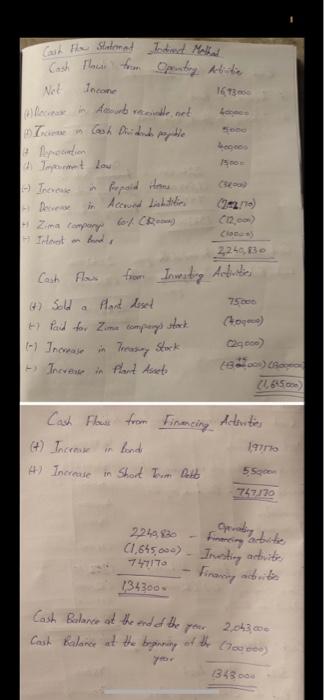 Cash Flow Statement Indirect Method
Cash Flows from Operating Activities
Net Income 1693000
(+) Decrease in Accounts receivable, net 400000
(+) Increase in Cash Dividends payable 5000
(+) Depreciation 400000
(+) Impairment Loss 15000
(-) Increase in Prepaid Items
(-) Decrease in Accrued Liabilities
(-) Zima company 60% (12,000)
(-) Interest on Bonds
2,240,830
Cash Flow from Investing Activities
(+) Sold a Plant Asset 75000
(-) Paid for Zima company's stock (400000)
(-) Increase in Treasury Stock (20,000)
(-) Increase in Plant Assets
(1,645,000)
Cash Flows from Financing Activities
(+) Increase in bonds 197170
(+) Increase in Short Term Debts 550000
747170
2240,830 - Operating activities
(1,645,000) - Investing activities
747170 - Financing activities
1343000
Cash Balance at the end of the year 2,043,000
Cash Balance at the beginning of the (700 000)
year
1343 000